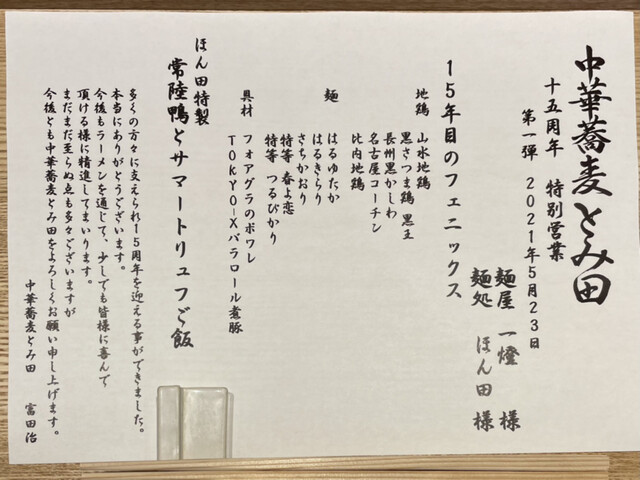 中華蕎麦とみ田
十五周年 特別営業
第一弾 2021年5月23日
麺屋 一燈 様
麺処 ほん田 様
15年目のフェニックス
地鶏 山水地鶏
黒さつま鶏 黒王
長州黒かしわ
名古屋コーチン
比内地鶏
麺 はるゆたか
はるきらり
さちかおり
特等 春よ恋
特等 つるぴかり
具材 フォアグラのポワレ
TOKYO-Xバラロール煮豚
ほん田特製
常陸鴨とサマートリュフご飯
多くの方々に支えられ15周年を迎える事ができました。
本当にありがとうございます。
今後もラーメンを通じて、少しでも皆様に喜んで
頂ける様に精進してまいります。
まだまだ至らぬ点も多々ございますが
今後とも中華蕎麦とみ田をよろしくお願い申し上げます。
中華蕎麦とみ田 富田治